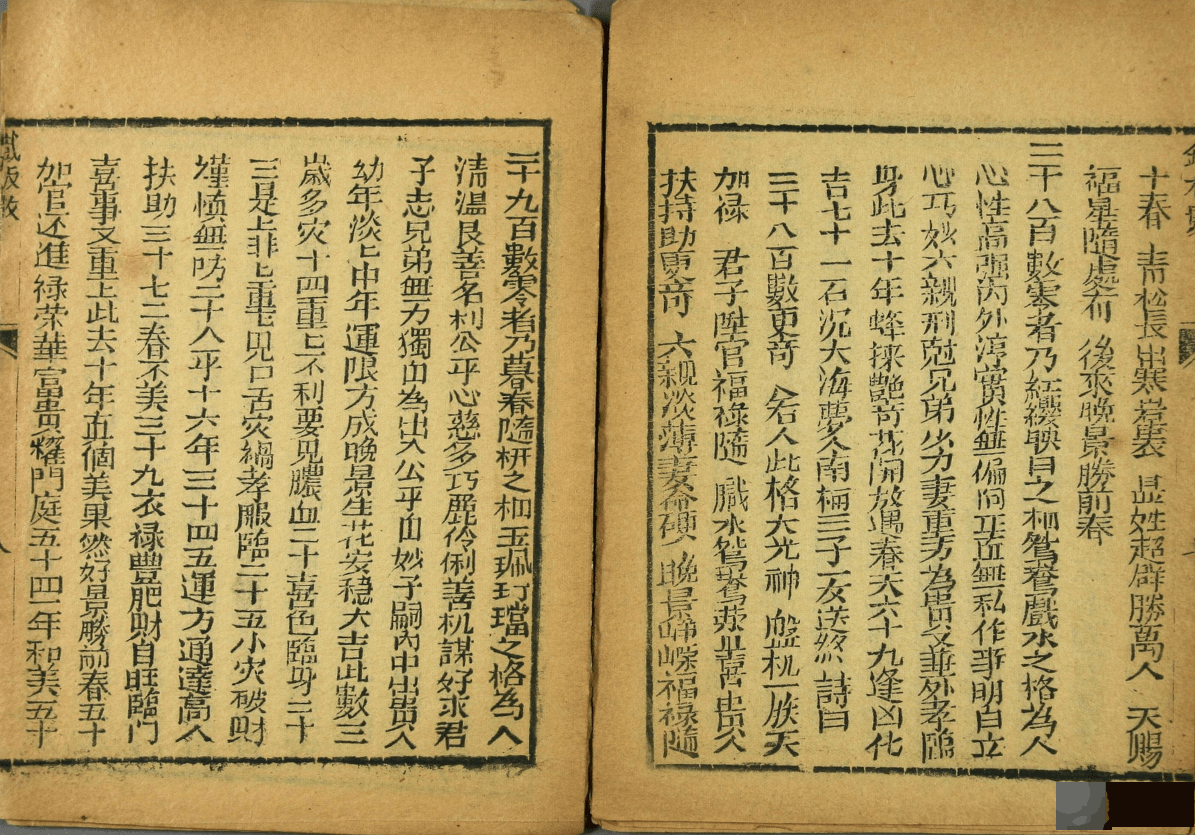 十春 青松長出寒岩裏 显姓超群勝萬人 天賜
福星隨處有 後來晚景勝前春
二千八百數零者乃紅纓映日之相鴛鴦戲水之格為人
心性高强内外淳實性無偏向正直無私作事明白立
心巧妙六親刑尅兄弟少力妻重方為貴父華外孝臨
身此去十年蜂採艷苛花開放遇春天六十九逢凶化
吉七十一石沉大海夢入南柯三子一女送終 詩曰
二千八百數更奇 父君人此格大光神 盤杭一族天
加禄 君子陞官福禄隨 戲水鴛鴦並喜 貴人
扶持助更奇 六親淡薄妻喬硬 晚景崢嶸福禄隨
二千九百數零者乃暮春隨妍之相玉珮玎璫之格為人
清溫良善名利公平心慈多巧麄伶俐善机謀好求君
子志兄弟無力獨由為出入公平由妙子嗣内中出貴人
幼年淡匕中年運限方成晚景生花安穩大吉此數三
歲多灾十四重匕不利要見膿血二十喜色臨身二十
三是上非匕重匕見口舌灾禍孝服臨二十五小灾破財
謹慎無妨二十八平十六年三十四五運方通達高人
扶助三十七二春不美三十九衣禄豐肥財自旺臨門
喜事又重上此去十年五個美果然好景勝前春五十
加官还進禄荣華富貴耀門庭五十四二年和美五十
鉄板數